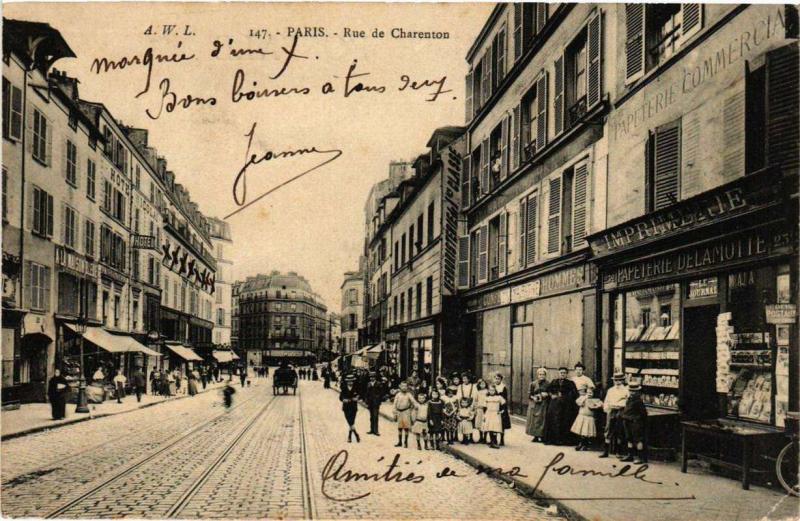 A. W. L. 147. - PARIS. - Rue de Charenton
marquée d'une X.
Bons baisers à tous deux
Jeanne
HÔTEL
PAPETERIE COMMERCIALE
IMPRIMERIE
PAPETERIE DELAMOTTE
LE JOURNAL
Amitiés de ma famille.